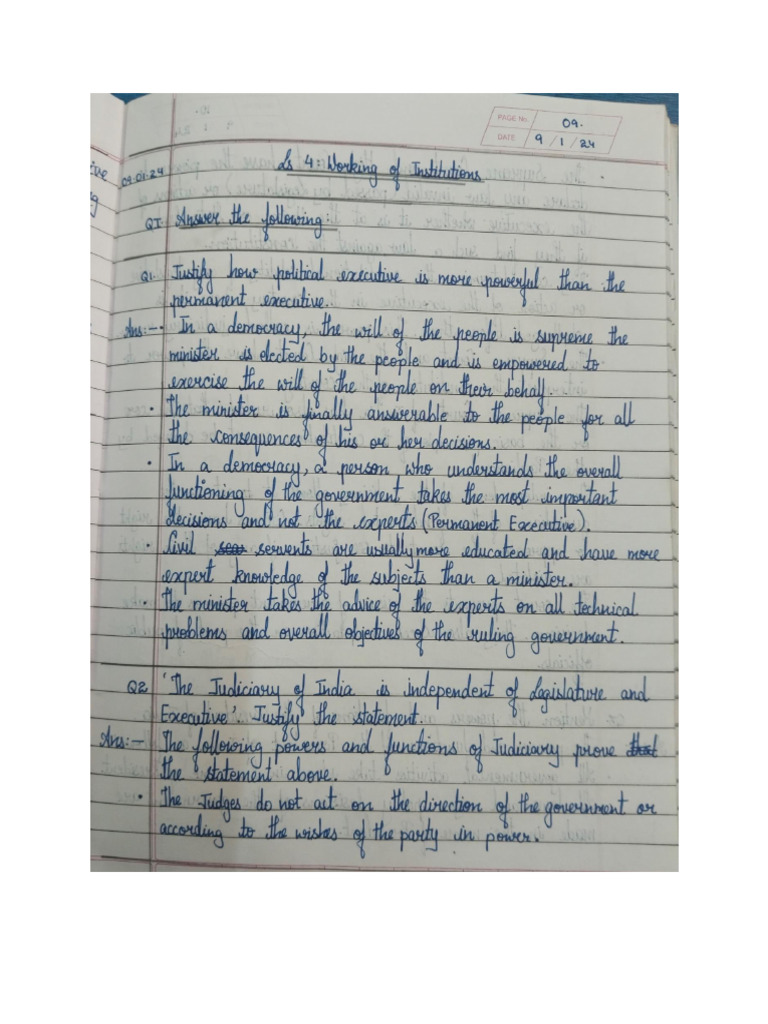 PAGE No. 09.
DATE 9 / 1 / 24
09.01.24 Ls 4: Working of Institutions
QI. Answer the following:
Q1. Justify how political executive is more powerful than the
permanent executive.
Ans:- • In a democracy, the will of the people is supreme the
minister is elected by the people and is empowered to
exercise the will of the people on their behalf.
• The minister is finally answerable to the people for all
the consequences of his or her decisions.
• In a democracy, a person who understands the overall
functioning of the government takes the most important
decisions and not the experts (Permanent Executive).
• Civil servents are usually more educated and have more
expert knowledge of the subjects than a minister.
• The minister takes the advice of the experts on all technical
problems and overall objectives of the ruling government.
Q2 'The Judiciary of India is independent of Legislature and
Executive' Justify the statement.
Ans:- The following powers and functions of Judiciary prove
the statement above.
• The Judges do not act on the direction of the government or
according to the wishes of the party in power.